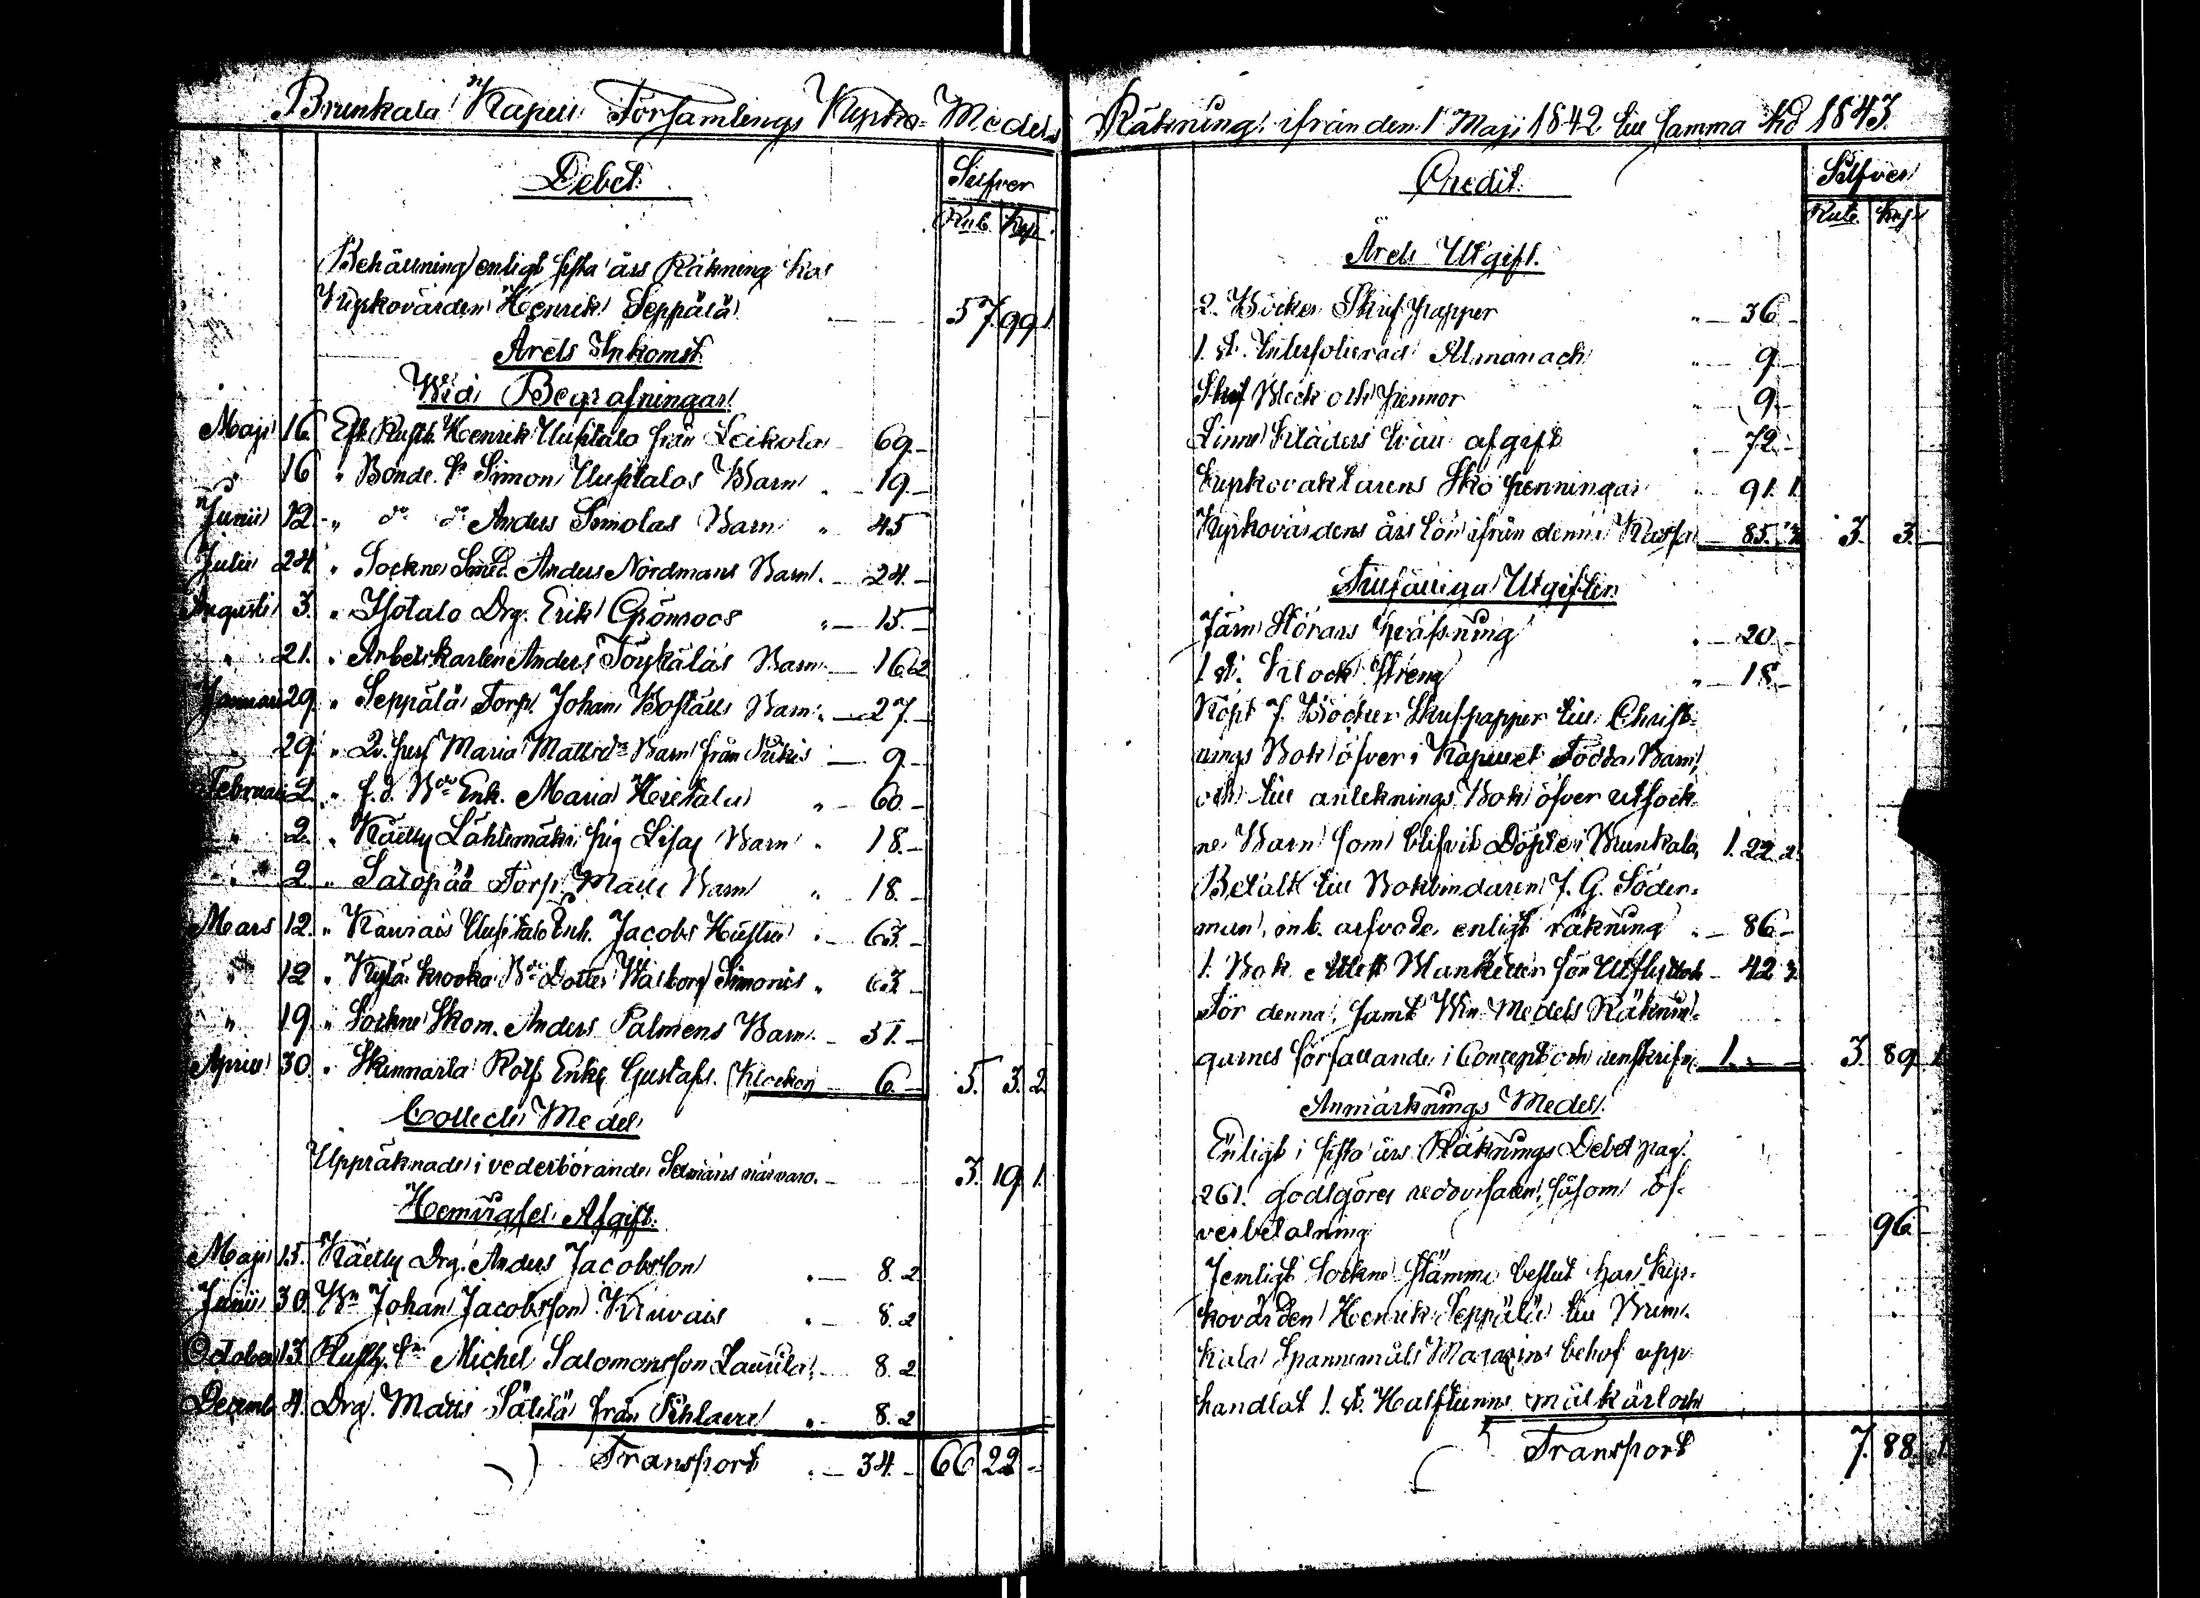 Brunkala Kapell Församlings Kyrko-Medels
Debet.
Silfver
Rub. Kop.
Behållning enligt sista års Räkning hos
Kyrkovärden Henrik Seppälä 57. 99 1.
Årets Inkomst
Wid Begrafningar
Maji 16. Eft. Rusth. Henrik Uusitalo från Leikola 69.
" 16 " Bonde Sn Simon Uusitalos Barn " 19.
Junii 12. " do do Anders Simolas Barn " 45
Julii 24. " Sockne Smed. Anders Nordmans Barn. 24.
Augusti 3. " Isotalo Drg. Erik Grönroos " 15.
" 21. " Arbetskarlen Anders Töykäläs Barn 16 2
Januari 29. " Seppälä Torp. Johan Boställs Barn 27.
" 29. " Maria Mattsdr Barn från 9.
Februari 2. " f.d. Bde Enk. Maria Hietalu " 60.
" 2. " Källy Lähtemäki pig Lisas Barn " 18.
" 2 " Salopää Torp. Matts Barn " 18.
Mars 12. " Uusitalo Enk. Jacobs Hustru " 63.
" 12 " Kylä Krooka Bde Dotter Walborg Simonis " 63
" 19. " Sockne Skom. Anders Palmens Barn. 31.
April 30. " Skinnarla Rotf. Enk. Gustafs. (Klockan) 6. 5. 3. 2
Collect Medel
Uppräknade i vederbörandes närvaro. 3. 19 1.
Hemvigsel Afgift.
Maji 15. Källy Drg. Anders Jacobsson " 8. 2
Junii 30 Bn Johan Jacobsson " 8. 2
October 13. Rusth. Sn Michel Salomonsson Laurila, 8. 2
Decemb 4. Drg. Matts från " 8. 2
Transport " 34. 66 22
Räkning ifrån den 1 Maji 1842 till samma tid 1843.
Credit.
Silfver
Rub. Kop.
Årets Utgift.
2. Böcker Skrif papper " 36.
1. st. Interfolierad Almanach " 9.
Skrif Bleck och pennor " 9.
Linne Kläders afgift " 72.
Kyrkovaktarens Sko penningar " 91. 1.
Kyrkovärdens års lön ifrån denna Kassa 85. 2 3. 3.
Tillfälliga Utgifter
Järn Störars " 20
1 st. Klock Streng " 18.
Köpt 7. Böcker Skrifpapper till Christ-
nings Bok öfver i Kapellet Födda Barn,
och till anteknings Bok öfver utsock-
ne Barn som blifvit Döpte i Brunkala, 1. 22 2.
Betalt till Bokbindaren J. G. Söder-
man, inb. arfvode enligt räkning " 86
1. Bok Blanketter för 42 2.
För denna, samt Win Medels Räknin-
garnes författande i Concept och renskrifn. 1. 3. 89 1
Anmärknings Medel.
Enligt i sista års Räknings Debet pag.
261. godtgöres redovisaren, såsom öf-
verbetalning 96.
Jemligt Sockne Stämmo beslut har Kyr-
kovärden Henrik Seppälä till Brun-
kala Spannemåls Magazins behof upp
handlat 1. st. Halftunne målkärl och
Transport 7. 88. 1